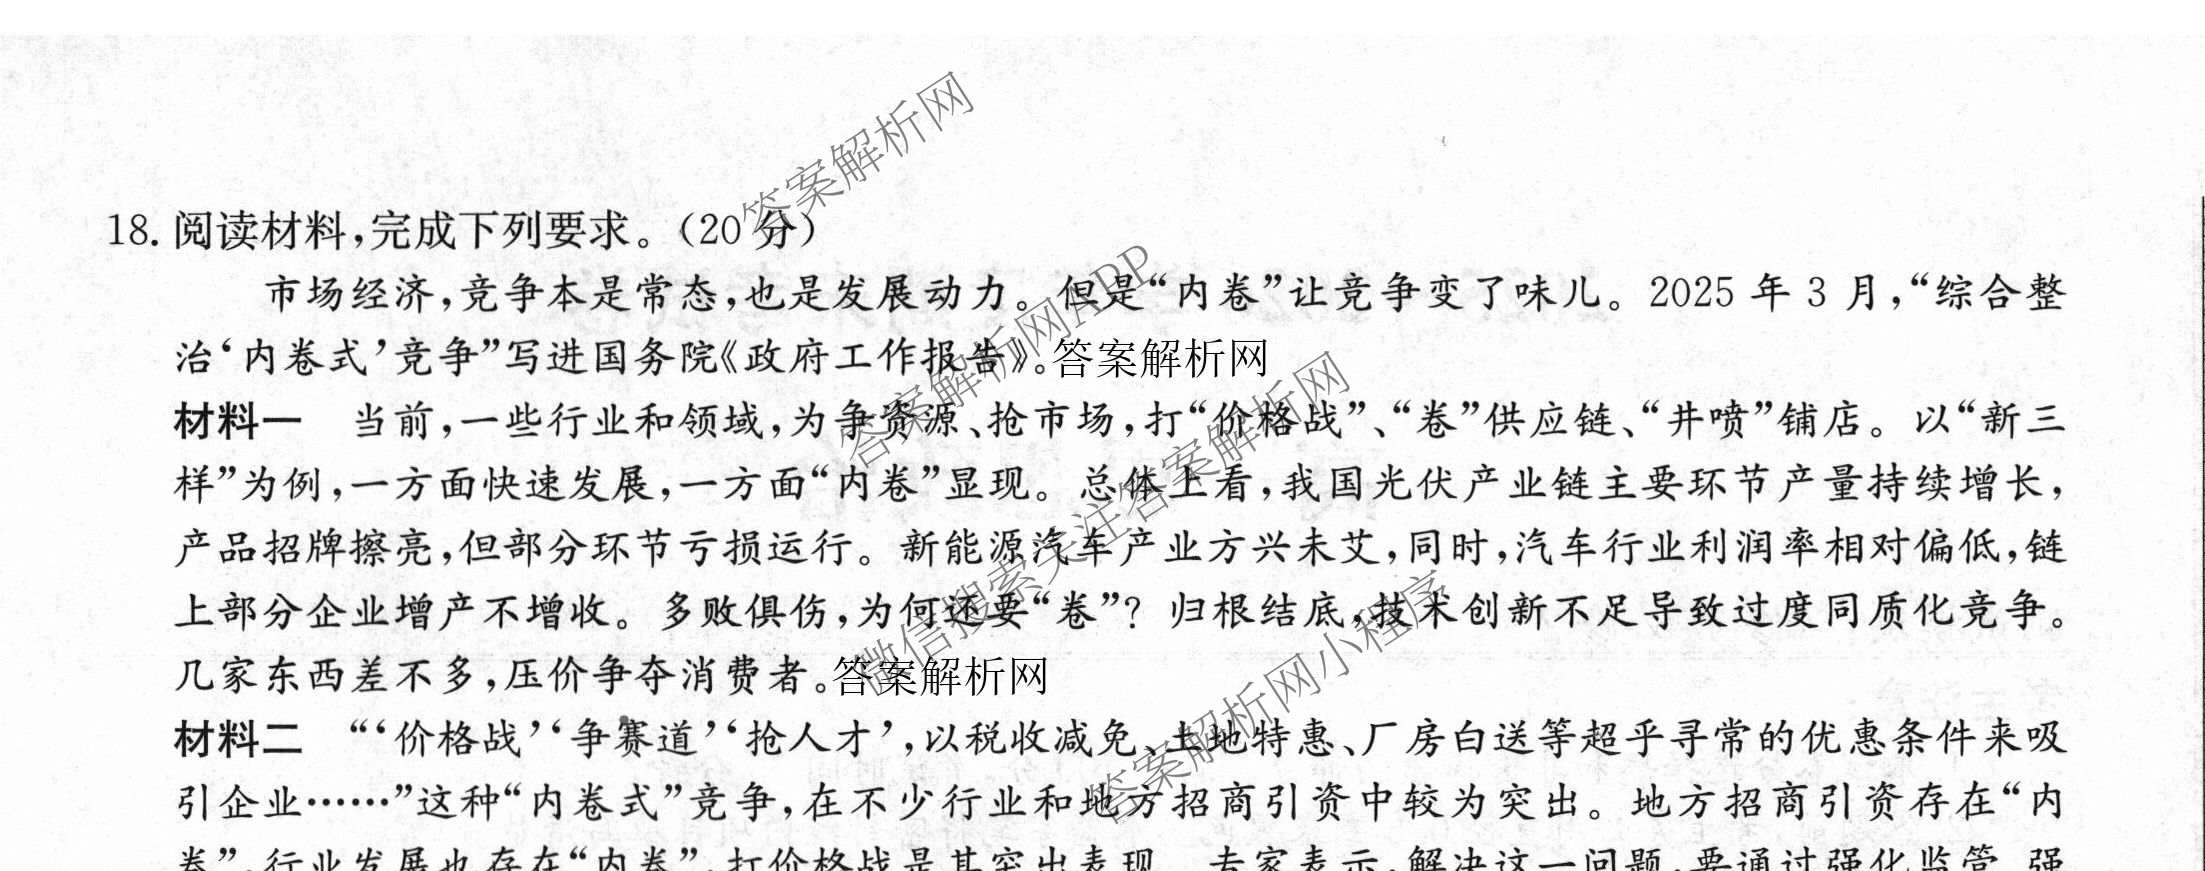 18. 阅读材料,完成下列要求。(20分)
市场经济,竞争本是常态,也是发展动力。但是“内卷”让竞争变了味儿。2025年3月,“综合整
治‘内卷式’竞争”写进国务院《政府工作报告》。答案解析网
材料一 当前,一些行业和领域,为争资源、抢市场,打“价格战”、“卷”供应链、“井喷”铺店。以“新三
样”为例,一方面快速发展,一方面“内卷”显现。总体上看,我国光伏产业链主要环节产量持续增长,
产品招牌擦亮,但部分环节亏损运行。新能源汽车产业方兴未艾,同时,汽车行业利润率相对偏低,链
上部分企业增产不增收。多败俱伤,为何还要“卷”?归根结底,技术创新不足导致过度同质化竞争。
几家东西差不多,压价争夺消费者。答案解析网
材料二 “‘价格战’‘争赛道’‘抢人才’,以税收减免、土地特惠、厂房白送等超乎寻常的优惠条件来吸
引企业……”这种“内卷式”竞争,在不少行业和地方招商引资中较为突出。地方招商引资存在“内
卷”,行业发展也存在“内卷”,打价格战是其突出表现。专家表示,解决这一问题,要通过强化监管、强
答案解析网
答案解析网APP
微信搜索关注答案解析网
答案解析网小程序